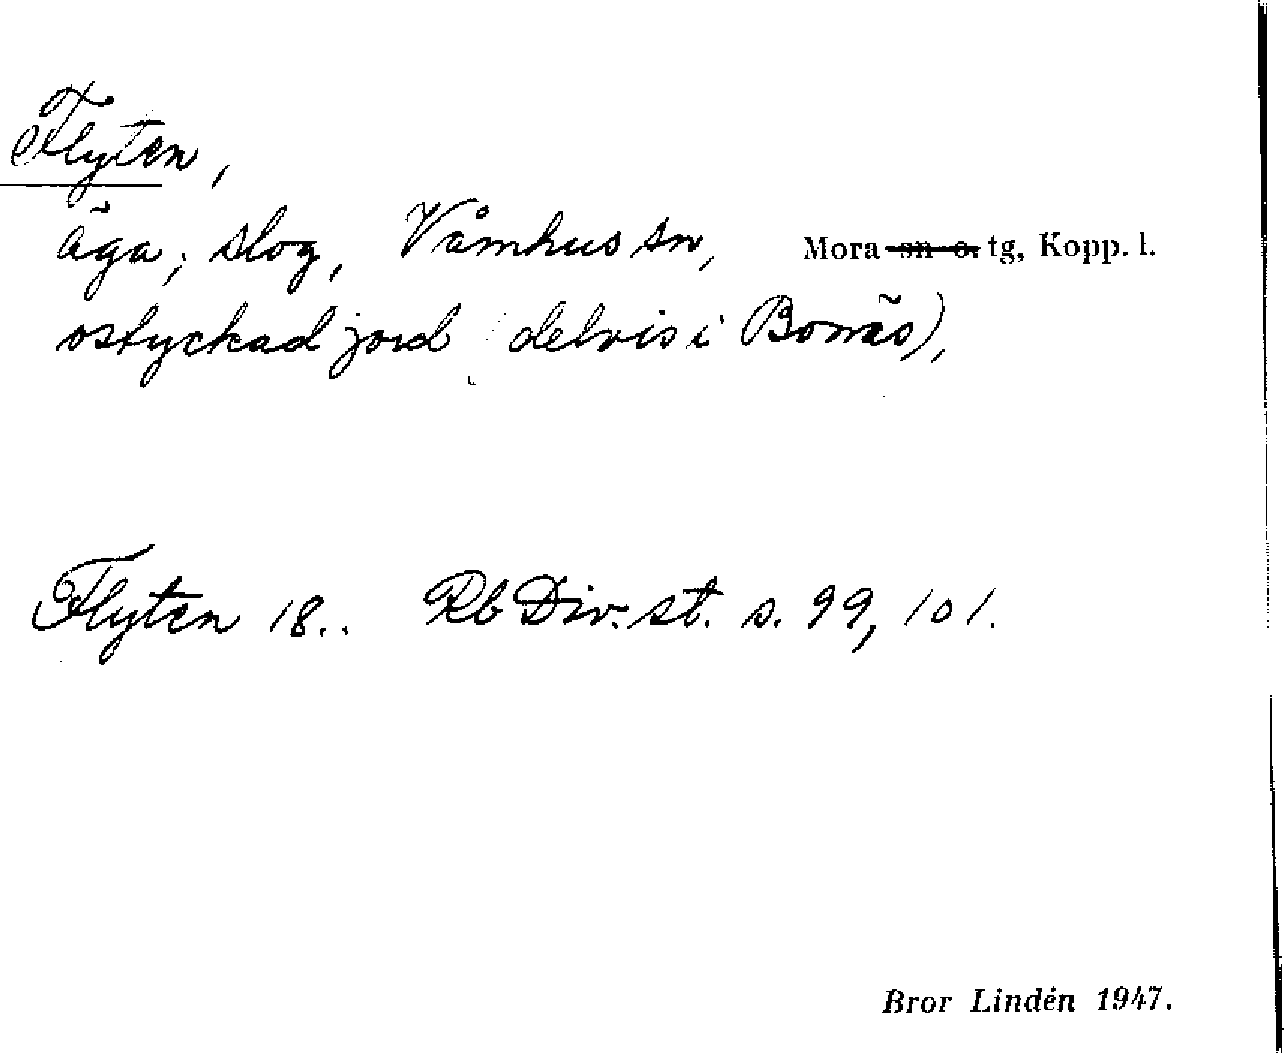 Flyten,
äga; slog, Våmhus sn, Mora sn o. tg, Kopp. l.
ostyckad jord (delvis i Bonäs),
Flyten 18.. Rb Div. st. s. 99, 101.
Bror Lindén 1947.